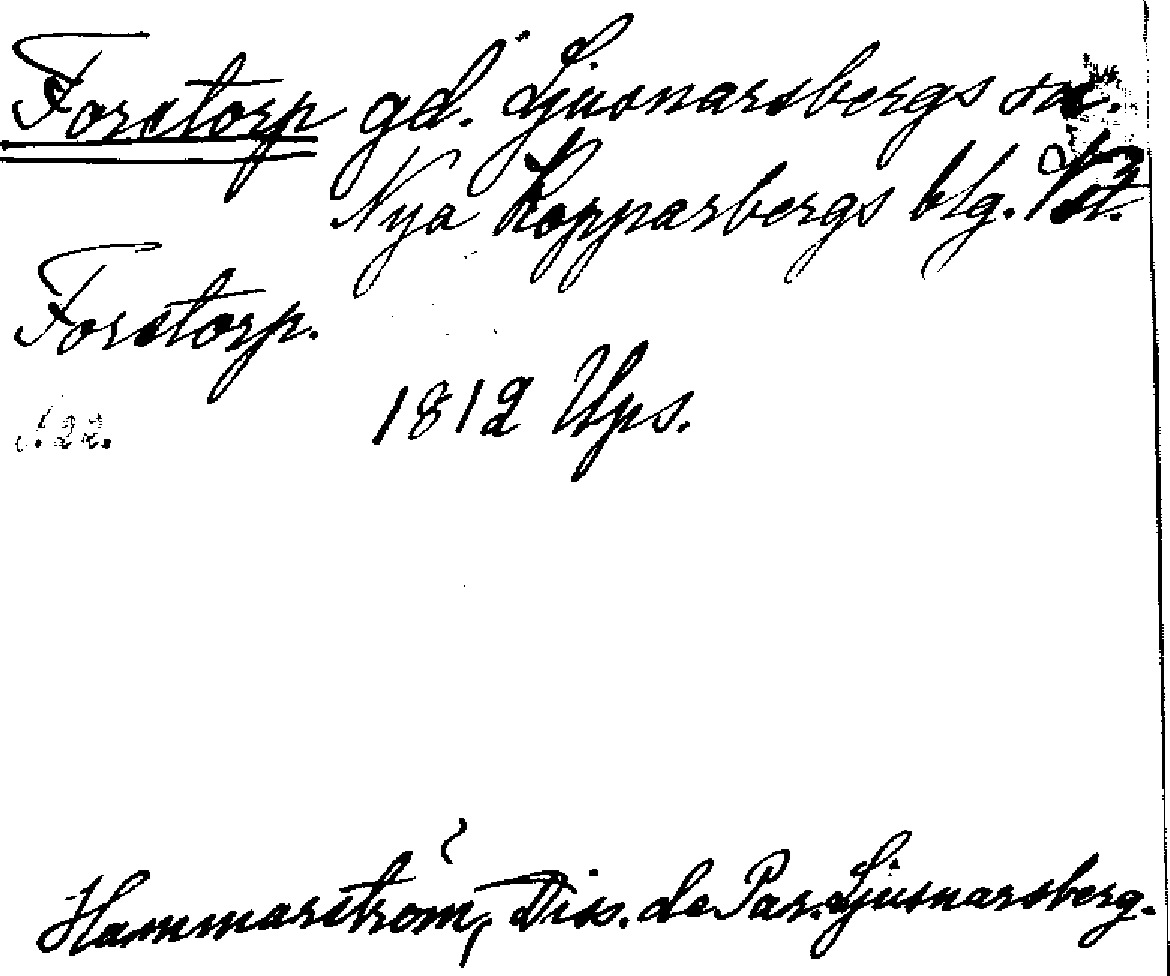 Forstorp gd. Ljusnarsbergs sn.
Nya Kopparbergs blg.
Forstorp.
s. 22.
1812 Ups.
Hammarström, Diss. de Par. Ljusnarsberg.